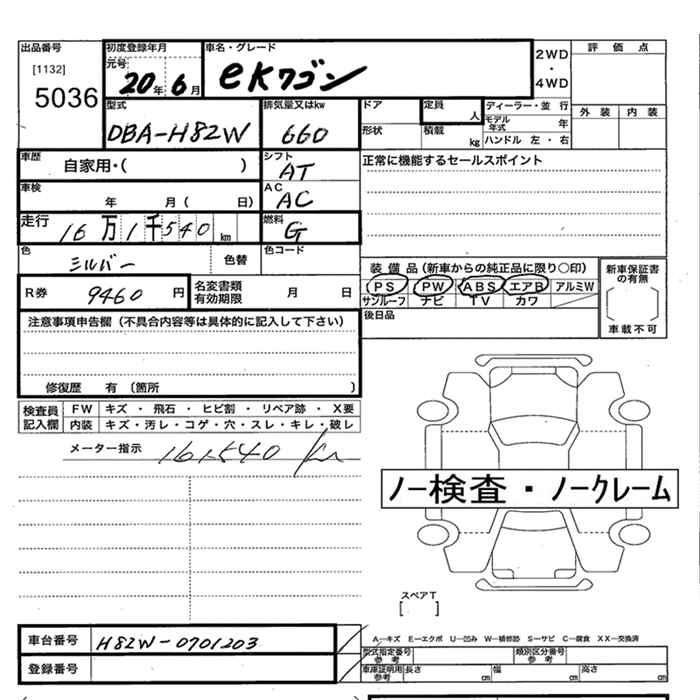 出品番号 [1132] 5036
初度登録年月 元号 20年 6月
車名・グレード eKワゴン
2WD・4WD
評価点
外装 内装
型式 DBA-H82W
排気量又はkw 660
ドア 形状
定員 人
積載 kg
ディーラー・並行
モデル年式 年
ハンドル 左・右
車歴 自家用・( )
シフト AT
正常に機能するセールスポイント
車検 年 月( 日)
AC AC
走行 16万1千540km
燃料 G
色 シルバー 色替
色コード
装備品(新車からの純正品に限り○印)
PS PW ABS エアB アルミW
サンルーフ ナビ TV カワ
新車保証書の有無
車載不可
R券 9460円
名変書類有効期限 月 日
後日品
注意事項申告欄(不具合内容等は具体的に記入して下さい)
修復歴 有(箇所 )
検査員記入欄
FW キズ・飛石・ヒビ割・リペア跡・X要
内装 キズ・汚レ・コゲ・穴・スレ・キレ・破レ
メーター指示 161540 km
ノー検査・ノークレーム
スペアT [ ]
車台番号 H82W-0701203
登録番号
A―キズ E―エクボ U―凹み W―補修跡 S―サビ C―腐食 XX―交換済
型式指定番号 参考
類別区分番号 参考
車庫証明用 参考 長さ cm 幅 cm 高さ cm